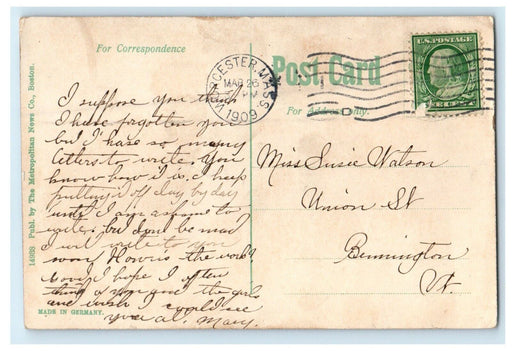 For Correspondence
Post Card
For Address Only.
WORCESTER, MASS.
MAR 26
PM
1909
U.S. POSTAGE
I suppose you think
I have forgotten you
but I have so many
letters to write. You
know how it is, I keep
putting it off day by day
until I am ashamed to
write. but dont be mad
I will write to you
soon. How is the work?
I hope I often
think of you and the girls
and wish I could see
you all. Mary.
Miss Susie Watson
Union St
Bennington
Vt.
14988 Publ. by The Metropolitan News Co., Boston.
MADE IN GERMANY.